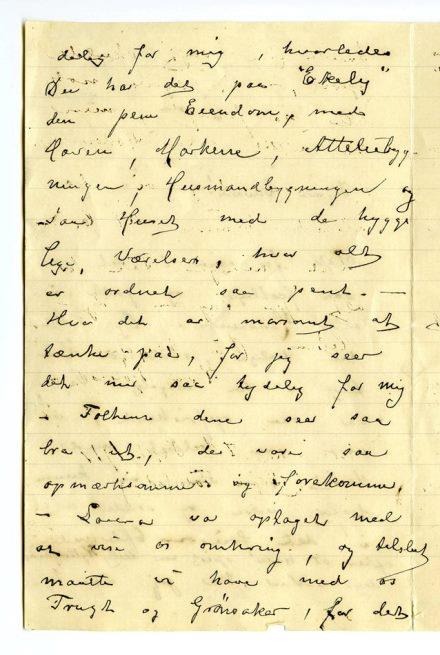 delig for mig, hvorledes
Du har det paa "Ekely"
den pene Eiendom, med
Haven, Markerne, Attelierbyg-
ningen, Husmandbygningen og
saa Huset med de hygge
lige, Værelser, hvor alt
er ordnet saa pent. —
Hvor det er morsomt at
tænke paa, for jeg seer
det nu saa tydelig for mig
- Folkene dine saa saa
bra ut, de vare saa
opmærksomme og forekomme.
- Laura va optaget med
at vise os omkring, og tilslut
maatte vi have med os
Frugt og Grönsaker, for det